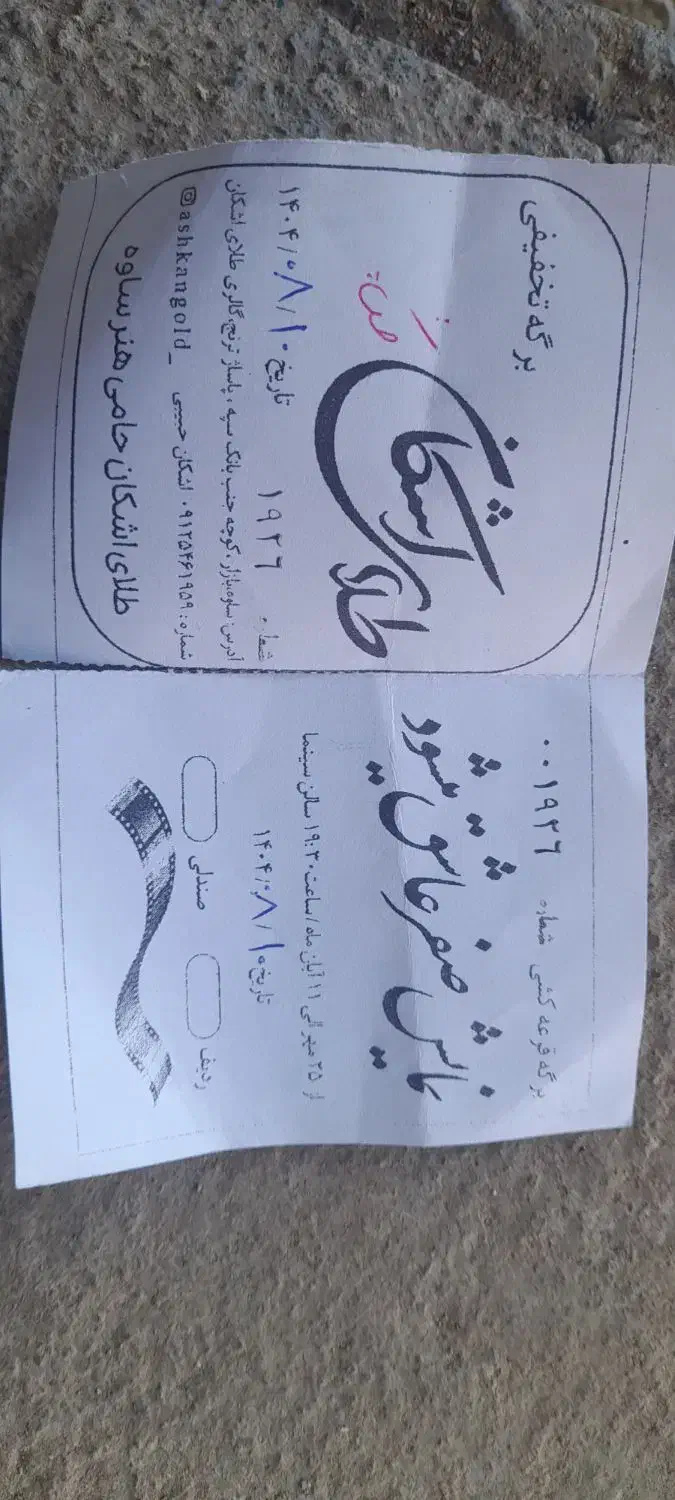 برگه تخفیفی
طلای اشکان
تاریخ ۱۴۰۴/۰۸/۱۰
شماره ۱۹۲۶
آدرس: ساوه، بازار، کوچه جنب بانک سپه، پاساژ ترنج، گالری طلای اشکان
شماره: ۰۹۱۲۵۴۶۱۹۵۹ اشکان حبیبی @ashkangold_
طلای اشکان حامی هنر ساوه
برگه قرعه کشی شماره ۰۰۱۹۲۶
نمایش صفر عاشق میشود
از ۲۵ مهر الی ۱۱ آبان ماه / ساعت ۱۹:۳۰ سالن سینما
تاریخ ۱۴۰۴/۰۸/۱۰
ردیف صندلی